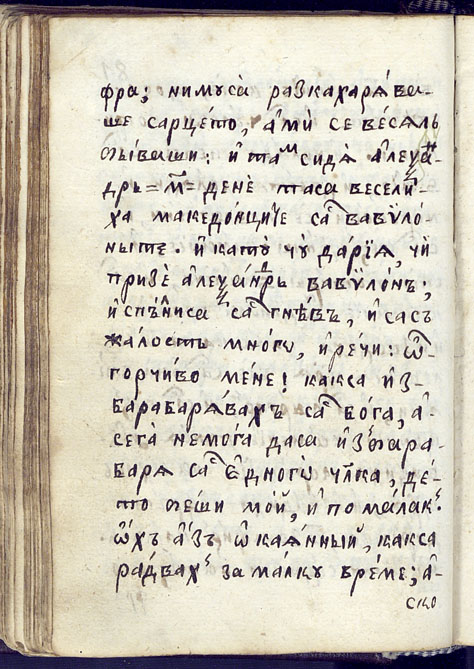 фра; нимꙋса̀ разкахарѧ́ва-
ше сарце́то, а҆мѝ се ве́сѧль
ѡти́ваши: и҆ таⷨ сидѧ̀ але́ѯаⷩ҇-
дрь = м҃ = денѐ таса весели́-
ха македо́нциꙋ̀е саⷭ вавѷло́-
ныте. и҆ катꙋ чꙋ̀ да́рїѧ, чѝ
призѐ але́ѯанⷣрь вавѷло́нъ;
и҆спъ́ниса саⷭ гнѣ́въ, и҆ сасъ
жа́лость мно́гѡ, и҆ ре́чи: ѿ-
горчи́во ме́не! какса и҆з-
барабарѧ́вахъ саⷭ бо́га, а҆-
сега̀ немо́га даса и҆зⸯбара-
барѧ саⷭ є҆дногѡ̀ чл҃ка, де́-
то бе́ши мо́й, и҆ по ма́лакⸯ.
ѡ҆́хъ а҆́зъ ѡ҆каѧ́нный, какса
ра́двахⸯ за ма́лкꙋ вре́ме; а҆-
ско